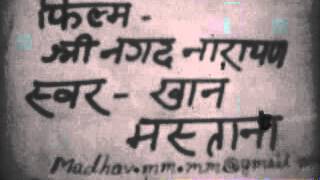 फिल्म -
श्री नगद नारायण
स्वर - खान
मस्ताना
Madhav.mm.mm@gmail